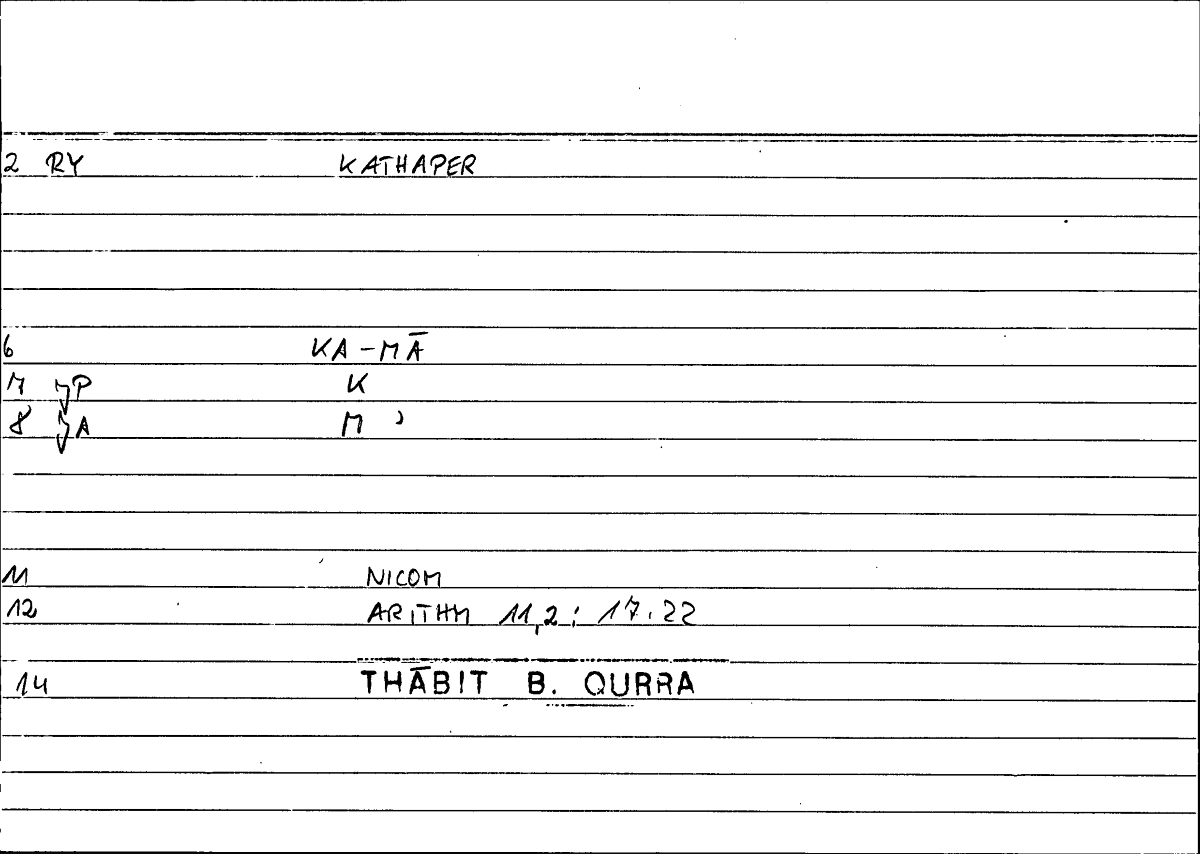 2 RY KATHAPER
6 KA-MĀ
7 P K
8 A M ʾ
11 NICOM
12 ARITHM 11,2; 17.22
14 THĀBIT B. QURRA